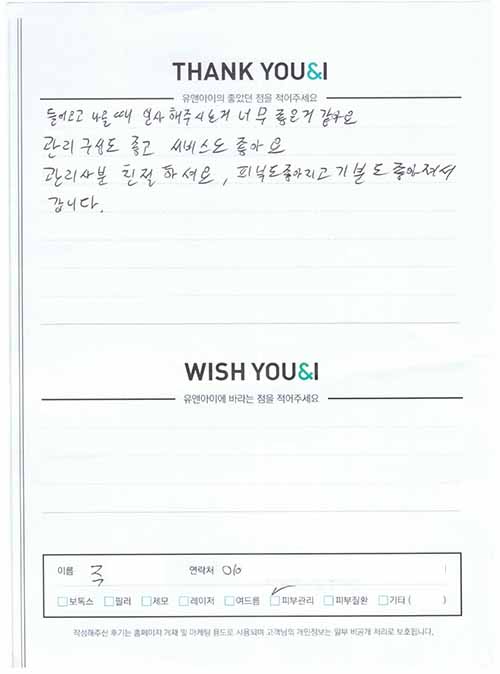 THANK YOU&I
유앤아이의 좋았던 점을 적어주세요
들어오고 나올때 인사해주시는거 너무 좋은거 같아요
관리 구성도 좋고 서비스도 좋아요
관리사분 친절하셔요, 피부도좋아지고 기분도 좋아져서
갑니다.
WISH YOU&I
유앤아이에 바라는 점을 적어주세요
이름 주 연락처 010
보톡스 필러 제모 레이저 여드름 피부관리 피부질환 기타 ( )
작성해주신 후기는 홈페이지 게재 및 마케팅 용도로 사용되며 고객님의 개인정보는 일부 비공개 처리로 보호됩니다.